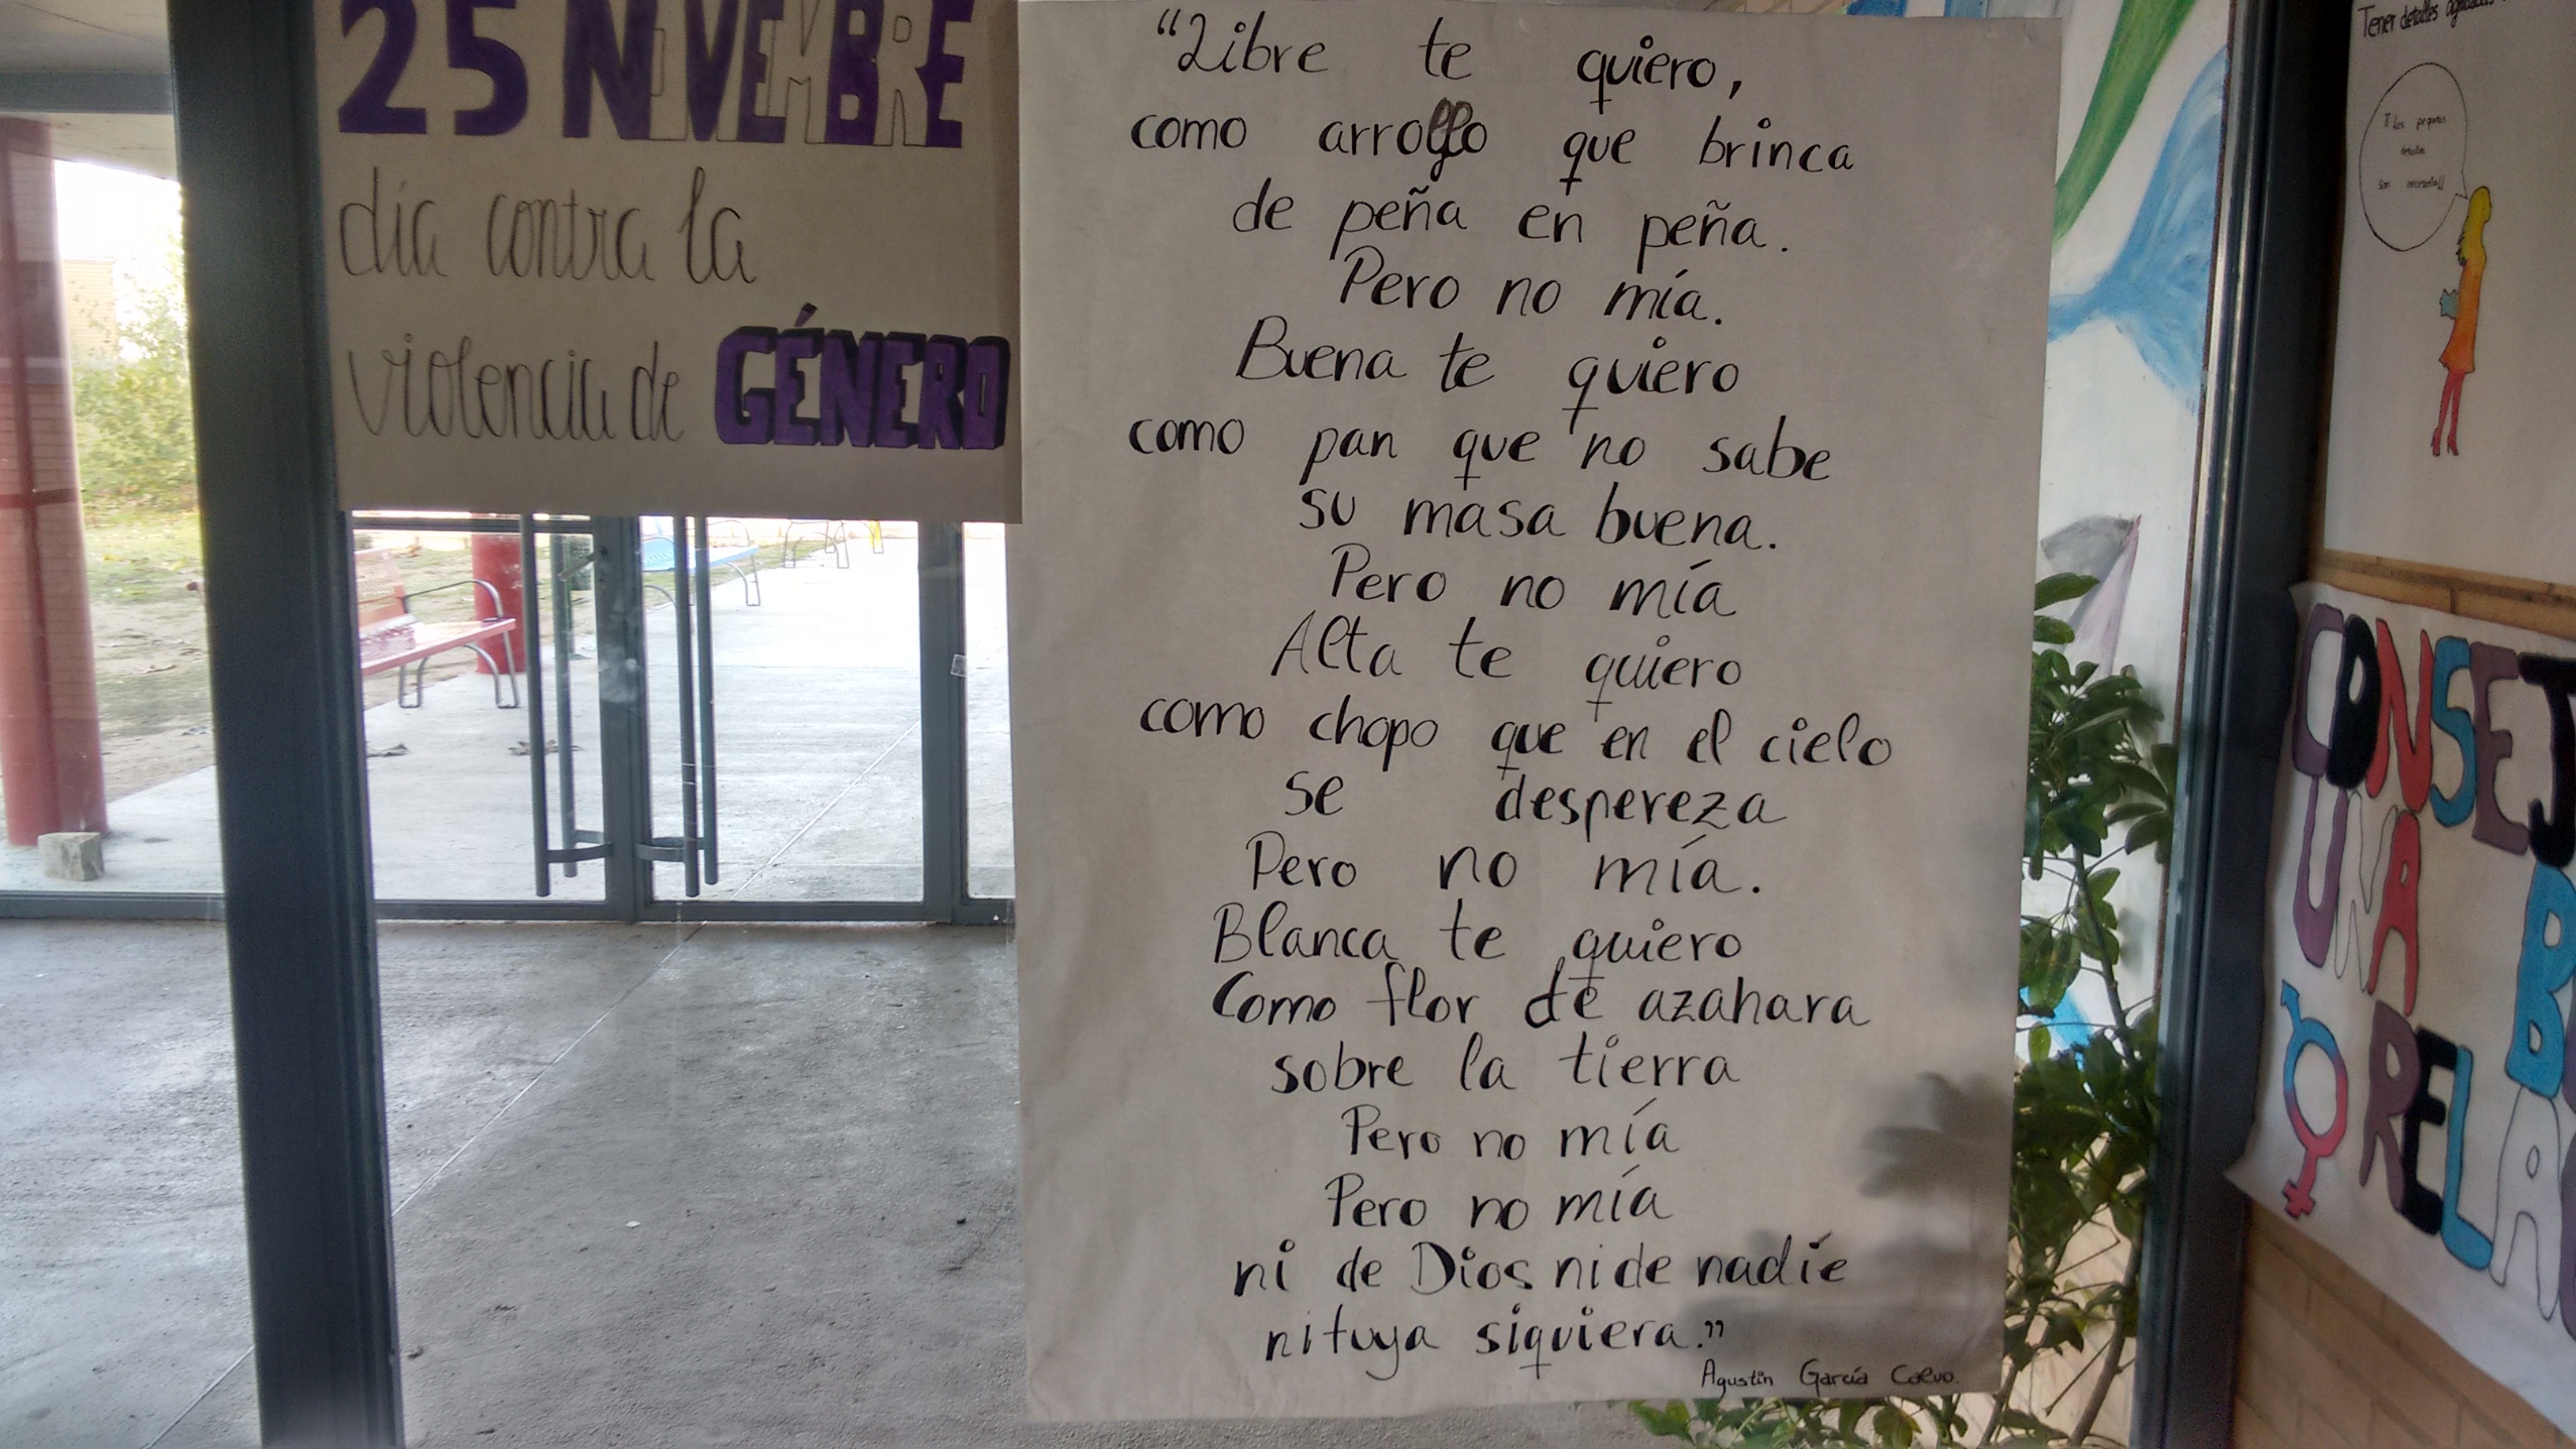 25 NOVIEMBRE
día contra la
violencia de GÉNERO
"Libre te quiero,
como arroyo que brinca
de peña en peña.
Pero no mía.
Buena te quiero
como pan que no sabe
su masa buena.
Pero no mía
Alta te quiero
como chopo que en el cielo
se despereza
Pero no mía.
Blanca te quiero
Como flor de azahara
sobre la tierra
Pero no mía
Pero no mía
ni de Dios ni de nadie
ni tuya siquiera."
Agustín García Calvo.
Tener detalles
Los pequeños
detalles
son necesarios!!
CONSEJ
UNA B
RELA